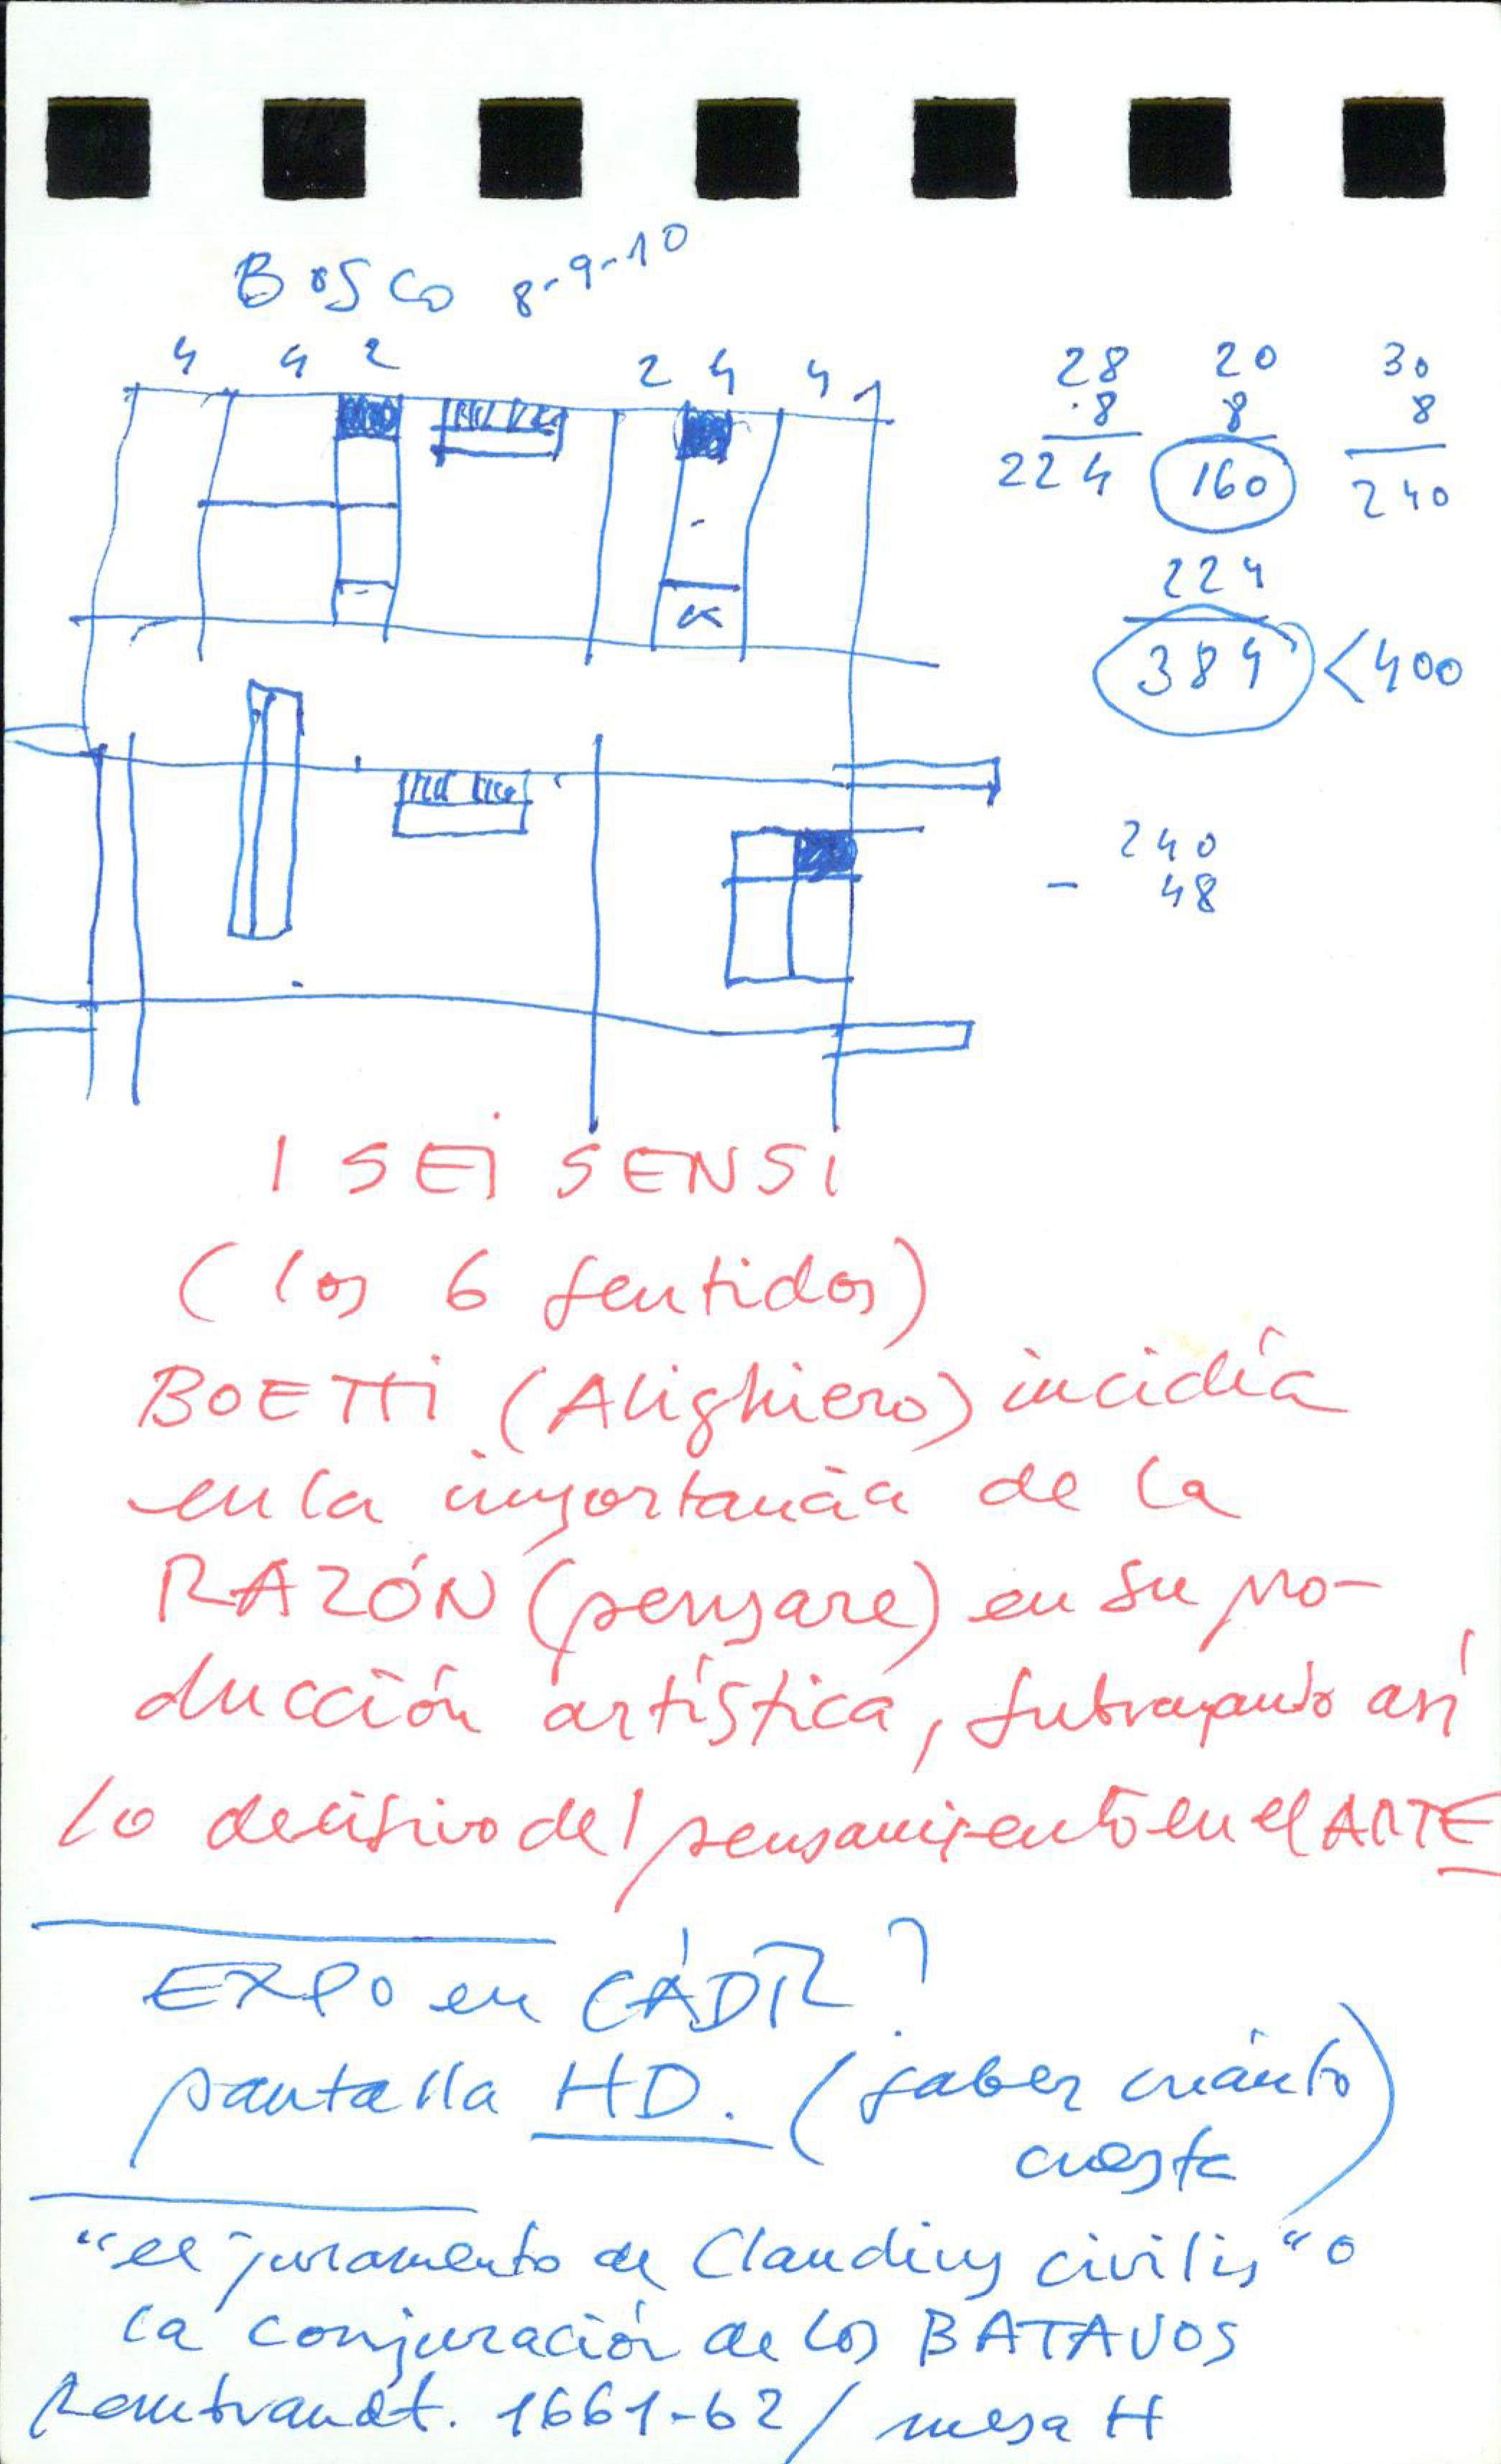 BOSCO 8-9-10
4 4 2 2 4 4
28 20 30
8 8 8
224 160 240
224
384 < 400
240
- 48
I SEI SENSI
(los 6 sentidos)
BOETTI (Alighiero) incidía
en la importancia de la
RAZÓN (pensare) en su pro-
ducción artística, subrayando así
lo decisivo del pensamiento en el ARTE
EXPO en CÁDIZ?
pantalla HD. (saber cuánto
cuesta)
"el juramento de Claudius civilis" o
la conjuración de los BATAVOS
Rembrandt. 1661-62 / mesa H